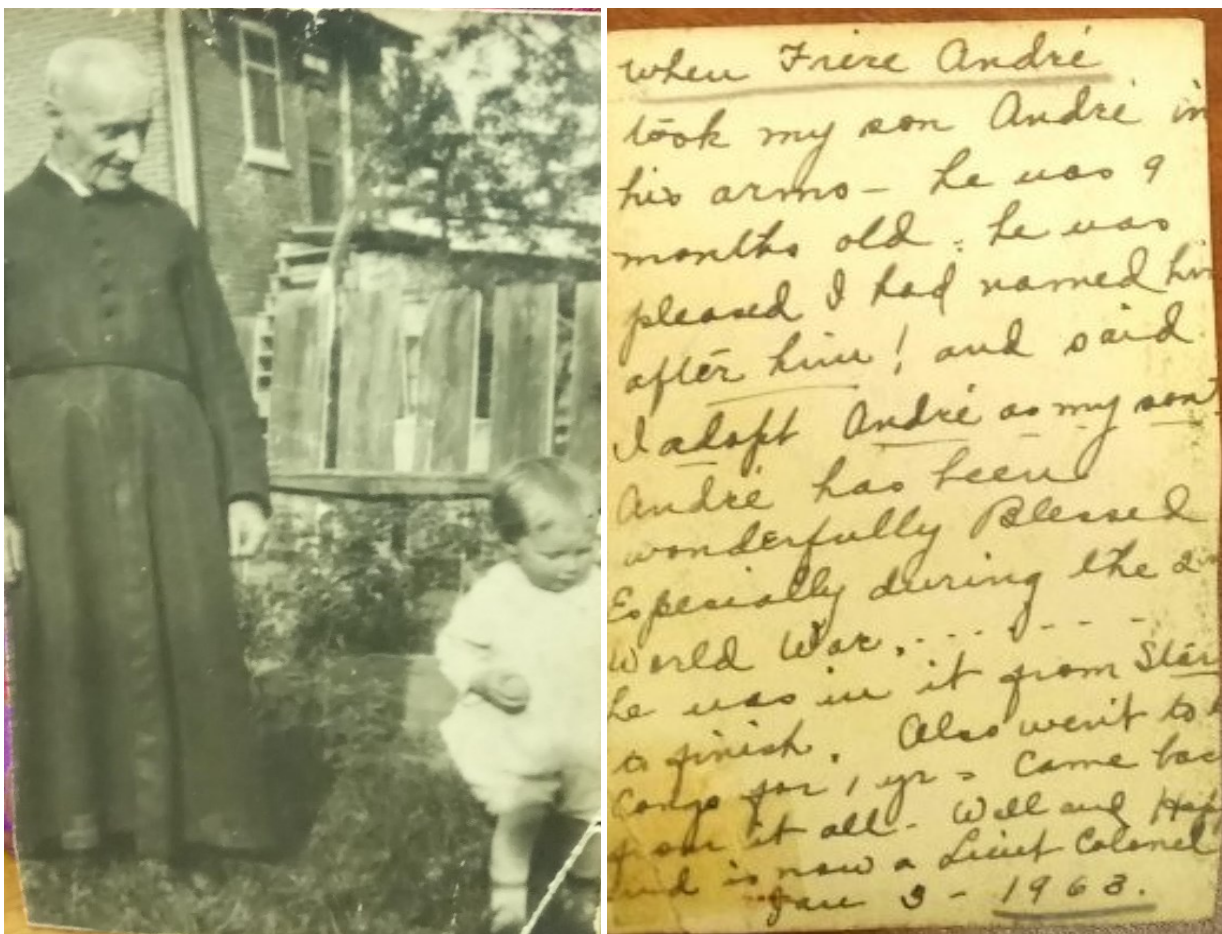 when Frère André
took my son André in
his arms - he was 9
months old. he was
pleased I had named him
after him! and said
I adopt André as my son
André has been
wonderfully Blessed
Especially during the
World War. . . . . . .
he was in it from Start
to finish. Also went to
Congo for 1 yr - Came back
from it all - Well and
and is now a Lieut Colonel
Jan 3 - 1963.